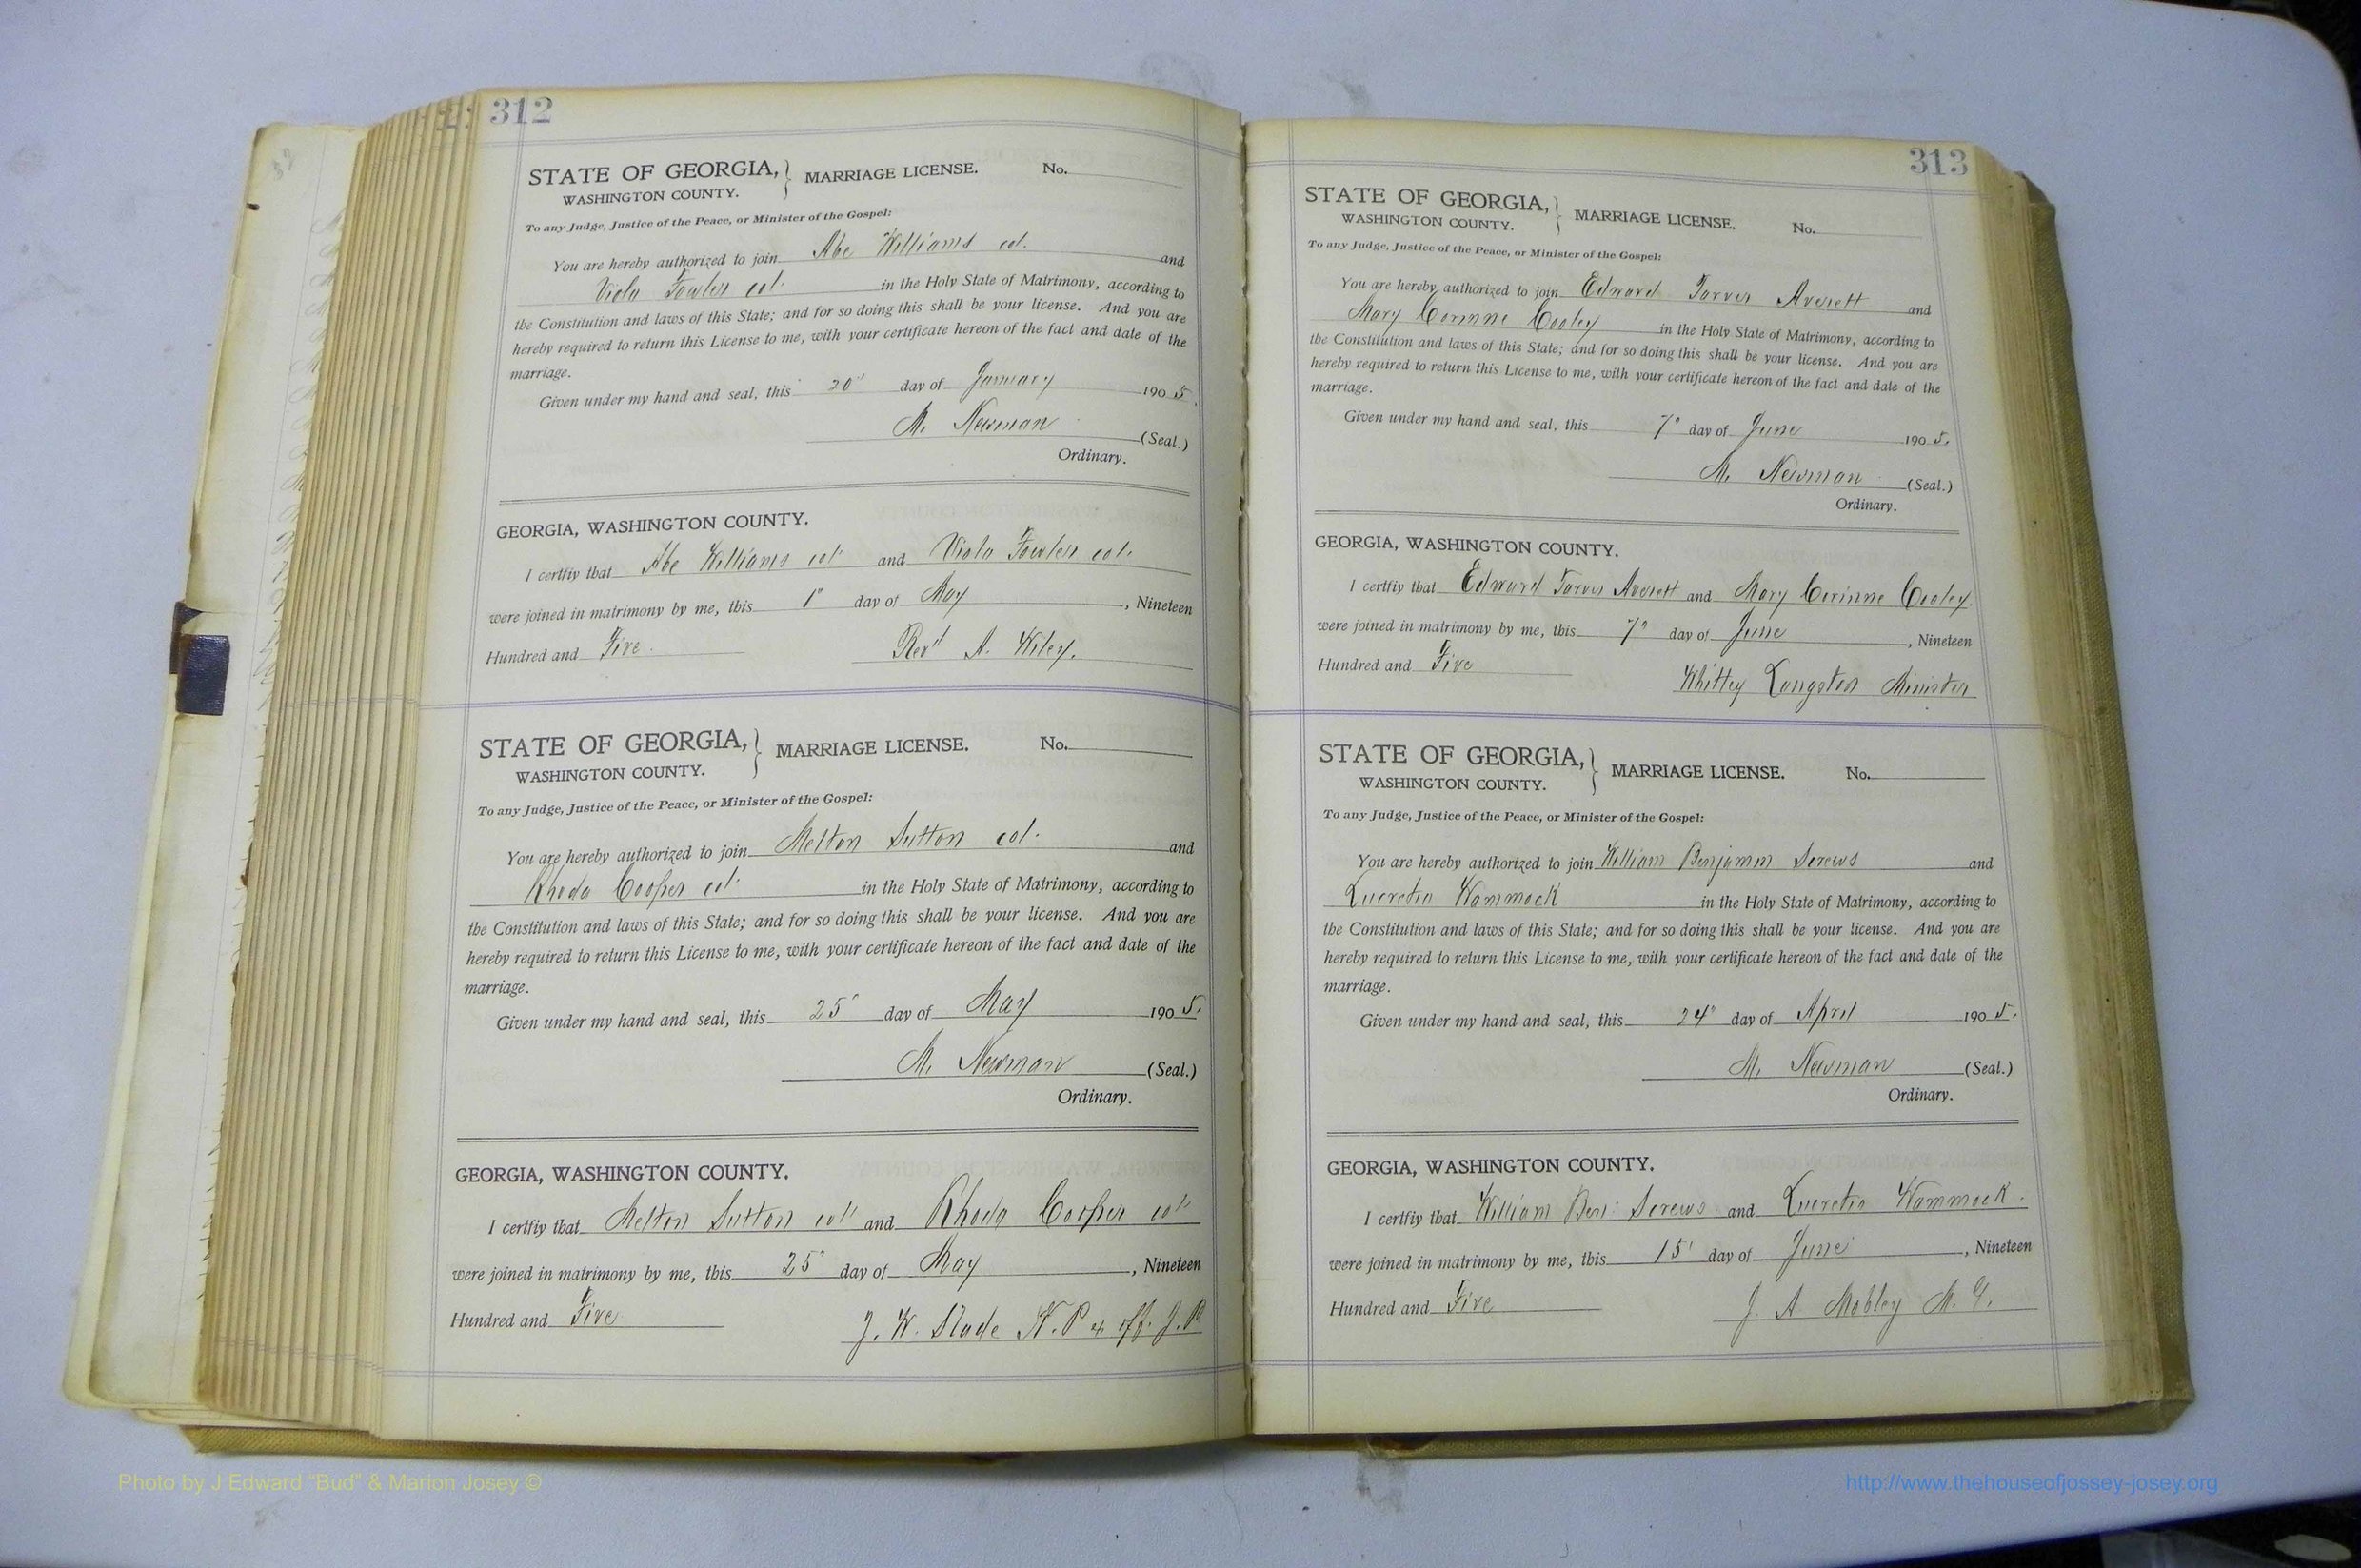 312
STATE OF GEORGIA, } MARRIAGE LICENSE. No.
WASHINGTON COUNTY.
To any Judge, Justice of the Peace, or Minister of the Gospel:
You are hereby authorized to join Abe Williams col. and
Viola Fowler col. in the Holy State of Matrimony, according to
the Constitution and laws of this State; and for so doing this shall be your license. And you are
hereby required to return this License to me, with your certificate hereon of the fact and date of the
marriage.
Given under my hand and seal, this 20" day of January 1905.
M. Newman (Seal.)
Ordinary.
GEORGIA, WASHINGTON COUNTY.
I certfiy that Abe Williams col and Viola Fowler col.
were joined in matrimony by me, this 1" day of May, Nineteen
Hundred and Five. Revd A. Wiley.
STATE OF GEORGIA, } MARRIAGE LICENSE. No.
WASHINGTON COUNTY.
To any Judge, Justice of the Peace, or Minister of the Gospel:
You are hereby authorized to join Melton Sutton col. and
Rhoda Cooper col. in the Holy State of Matrimony, according to
the Constitution and laws of this State; and for so doing this shall be your license. And you are
hereby required to return this License to me, with your certificate hereon of the fact and date of the
marriage.
Given under my hand and seal, this 25" day of May 1905.
M. Newman (Seal.)
Ordinary.
GEORGIA, WASHINGTON COUNTY.
I certfiy that Melton Sutton col and Rhoda Cooper col
were joined in matrimony by me, this 25" day of May, Nineteen
Hundred and Five J. W. Slade N. P & off. J. P
313
STATE OF GEORGIA, } MARRIAGE LICENSE. No.
WASHINGTON COUNTY.
To any Judge, Justice of the Peace, or Minister of the Gospel:
You are hereby authorized to join Edward Tarver Averett and
Mary Corinne Cooley in the Holy State of Matrimony, according to
the Constitution and laws of this State; and for so doing this shall be your license. And you are
hereby required to return this License to me, with your certificate hereon of the fact and date of the
marriage.
Given under my hand and seal, this 7" day of June 1905.
M. Newman (Seal.)
Ordinary.
GEORGIA, WASHINGTON COUNTY.
I certfiy that Edward Tarver Averett and Mary Corinne Cooley.
were joined in matrimony by me, this 7" day of June, Nineteen
Hundred and Five
Whitley Langston Minister
STATE OF GEORGIA, } MARRIAGE LICENSE. No.
WASHINGTON COUNTY.
To any Judge, Justice of the Peace, or Minister of the Gospel:
You are hereby authorized to join William Benjamin Screws and
Lucretia Wammock in the Holy State of Matrimony, according to
the Constitution and laws of this State; and for so doing this shall be your license. And you are
hereby required to return this License to me, with your certificate hereon of the fact and date of the
marriage.
Given under my hand and seal, this 24" day of April 1905.
M. Newman (Seal.)
Ordinary.
GEORGIA, WASHINGTON COUNTY.
I certfiy that William Ben: Screws and Lucretia Wammock.
were joined in matrimony by me, this 15' day of June, Nineteen
Hundred and Five J. A Mobley M. G.
Photo by J Edward "Bud" & Marion Josey ©
http://www.thehouseofjossey-josey.org